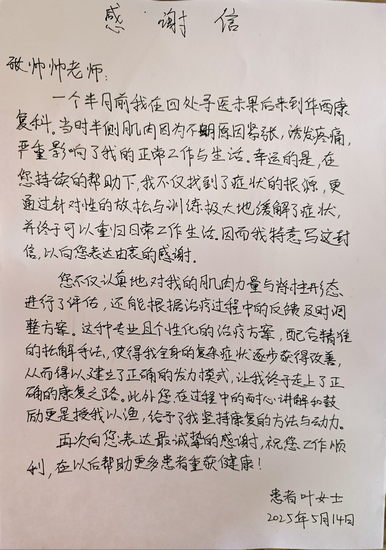 感谢信
张帅帅老师:
一个半月前我在四处寻医未果后来到华西康
复科。当时半侧肌肉因为不明原因紧张,诱发疼痛,
严重影响了我的正常工作与生活。幸运的是,在
您持续的帮助下,我不仅找到了症状的根源,更
通过针对性的放松与训练极大地缓解了症状,
并终于可以重归日常工作生活。因而我特意写这封
信,以向您表达由衷的感谢。
您不仅认真地对我的肌肉力量与脊柱形态
进行了评估,还能根据治疗过程中的反馈及时调
整方案。这种专业且个性化的治疗方案,配合精准
的松解手法,使得我全身的复杂症状逐步获得改善,
从而得以建立了正确的发力模式,让我终于走上了正
确的康复之路。此外您在过程中的耐心讲解和鼓
励更是授我以渔,给予了我坚持康复的方法与动力。
再次向您表达最诚挚的感谢,祝您工作顺
利,在以后帮助更多患者重获健康!
患者叶女士
2025年5月14日